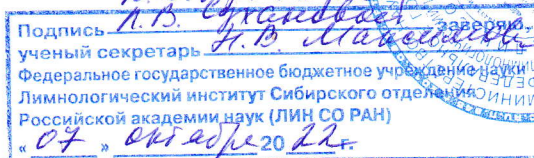 Подпись Л.В. Сухановой заверяю,
ученый секретарь Н.В. Максимова
Федеральное государственное бюджетное учреждение науки
Лимнологический институт Сибирского отделения
Российской академии наук (ЛИН СО РАН)
« 07 » октября 20 22 г.